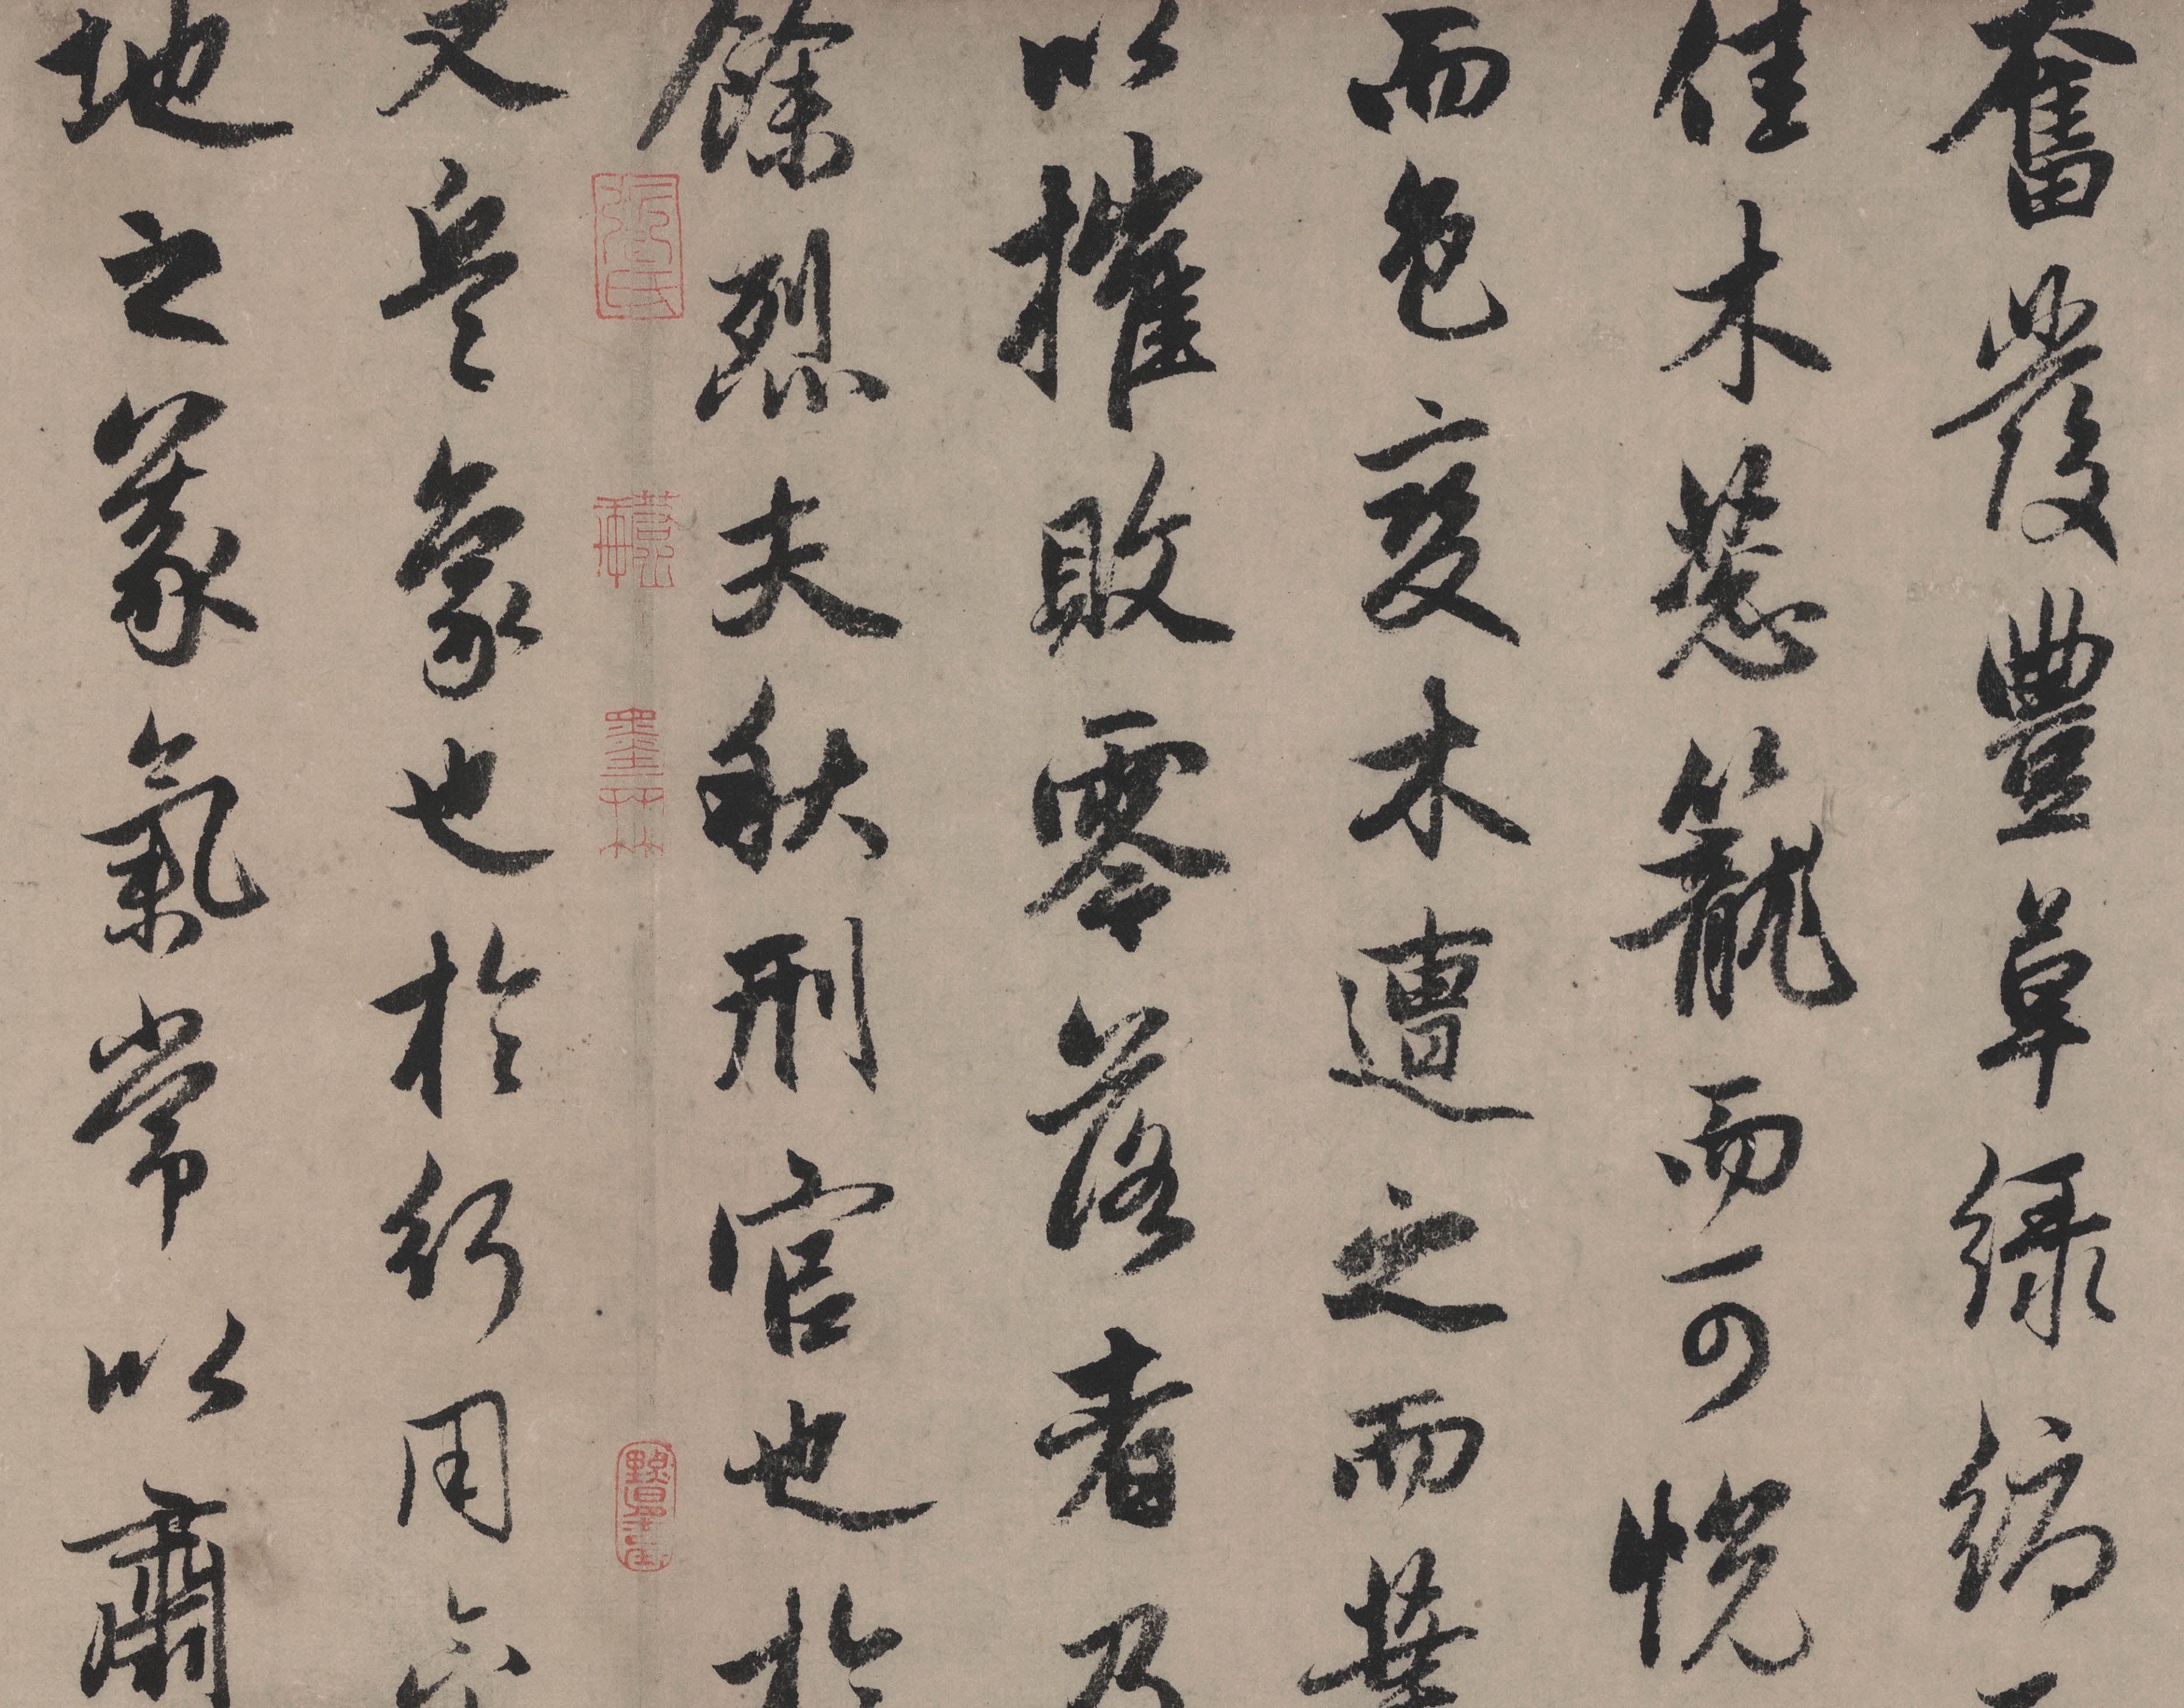 奮發豐草緑縟
佳木葱籠而可悅
而色變木遭之而葉
以摧敗零落者乃
餘烈夫秋刑官也於
又兵象也於行用
地之義氣常以肅
張氏
墨林